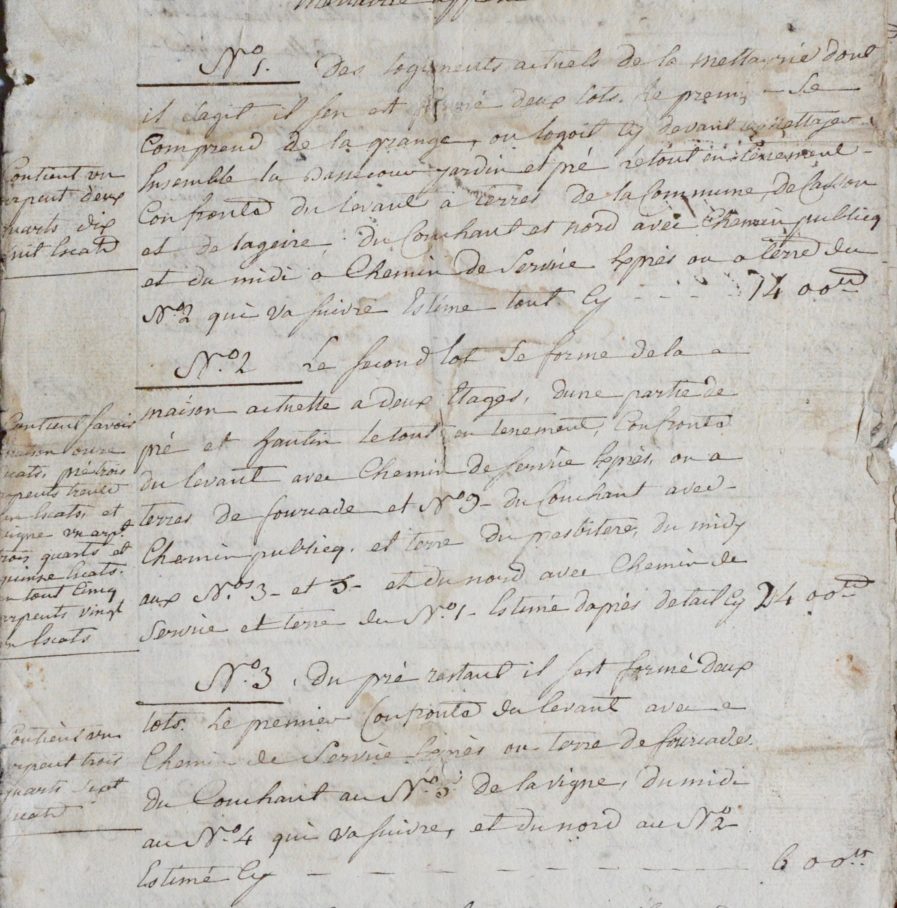 N.o 1. Des logements actuels de la mettairie dont
il sagit il sen et formé deux lots. Le premier Se
Comprend de la grange, ou logoit cy devant le mettayer
Ensemble la Bassecour jardin et pré le tout en tenement
Confronte du levant a terres de la Commune de Casson
et de lageire, du Couchant et nord avec Chemin publicq
et du midi a Chemin de Servise Exprès ou a terre du
N.o 2 qui va suivre Estimé tout Cy - - - - 1400 tt
Contient un
arpent deux
quarts dix
huit Escats
N.o 2 Le second lot Se forme de la
maison actuelle a deux Etages, dune partie de
pré et hautin le tout en tenement, Confronte
du levant avec Chemin de servise Exprès, ou a
terres de fourcade et N.o 9 - du Couchant avec
Chemin publicq, et terre du presbitere, du midy
aux N.os 3 - et 5 - et du nord avec Chemin de
Servise et terre du N.o 1 - Estimé daprès detail Cy 2400 tt
Contient savoir
maison onze
Escats, pré trois
arpents trente
un Escats, et
vigne un arpt
trois quarts et
quinse Escats.
en tout Cinq
arpents vingt
un Escats
N.o 3. Du pré restant il sest formé deux
lots. Le premier Confronte du levant avec
Chemin de Servise Exprès ou terre de fourcade.
du Couchant au N.o 5 de la vigne, du midi
au N.o 4 qui va suivre, et du nord au N.o 2
Estimé Cy - - - - - - - - 600 tt
Contient un
arpent trois
quarts sept
Escats